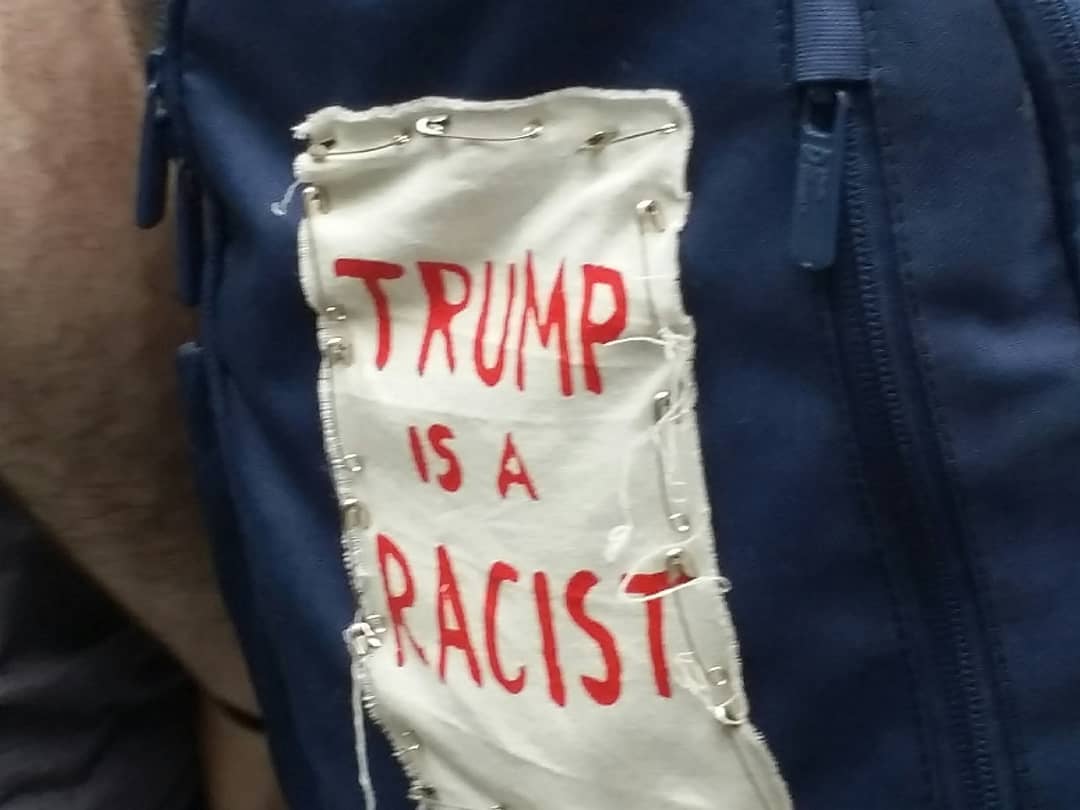 TRUMP
IS A
RACIST